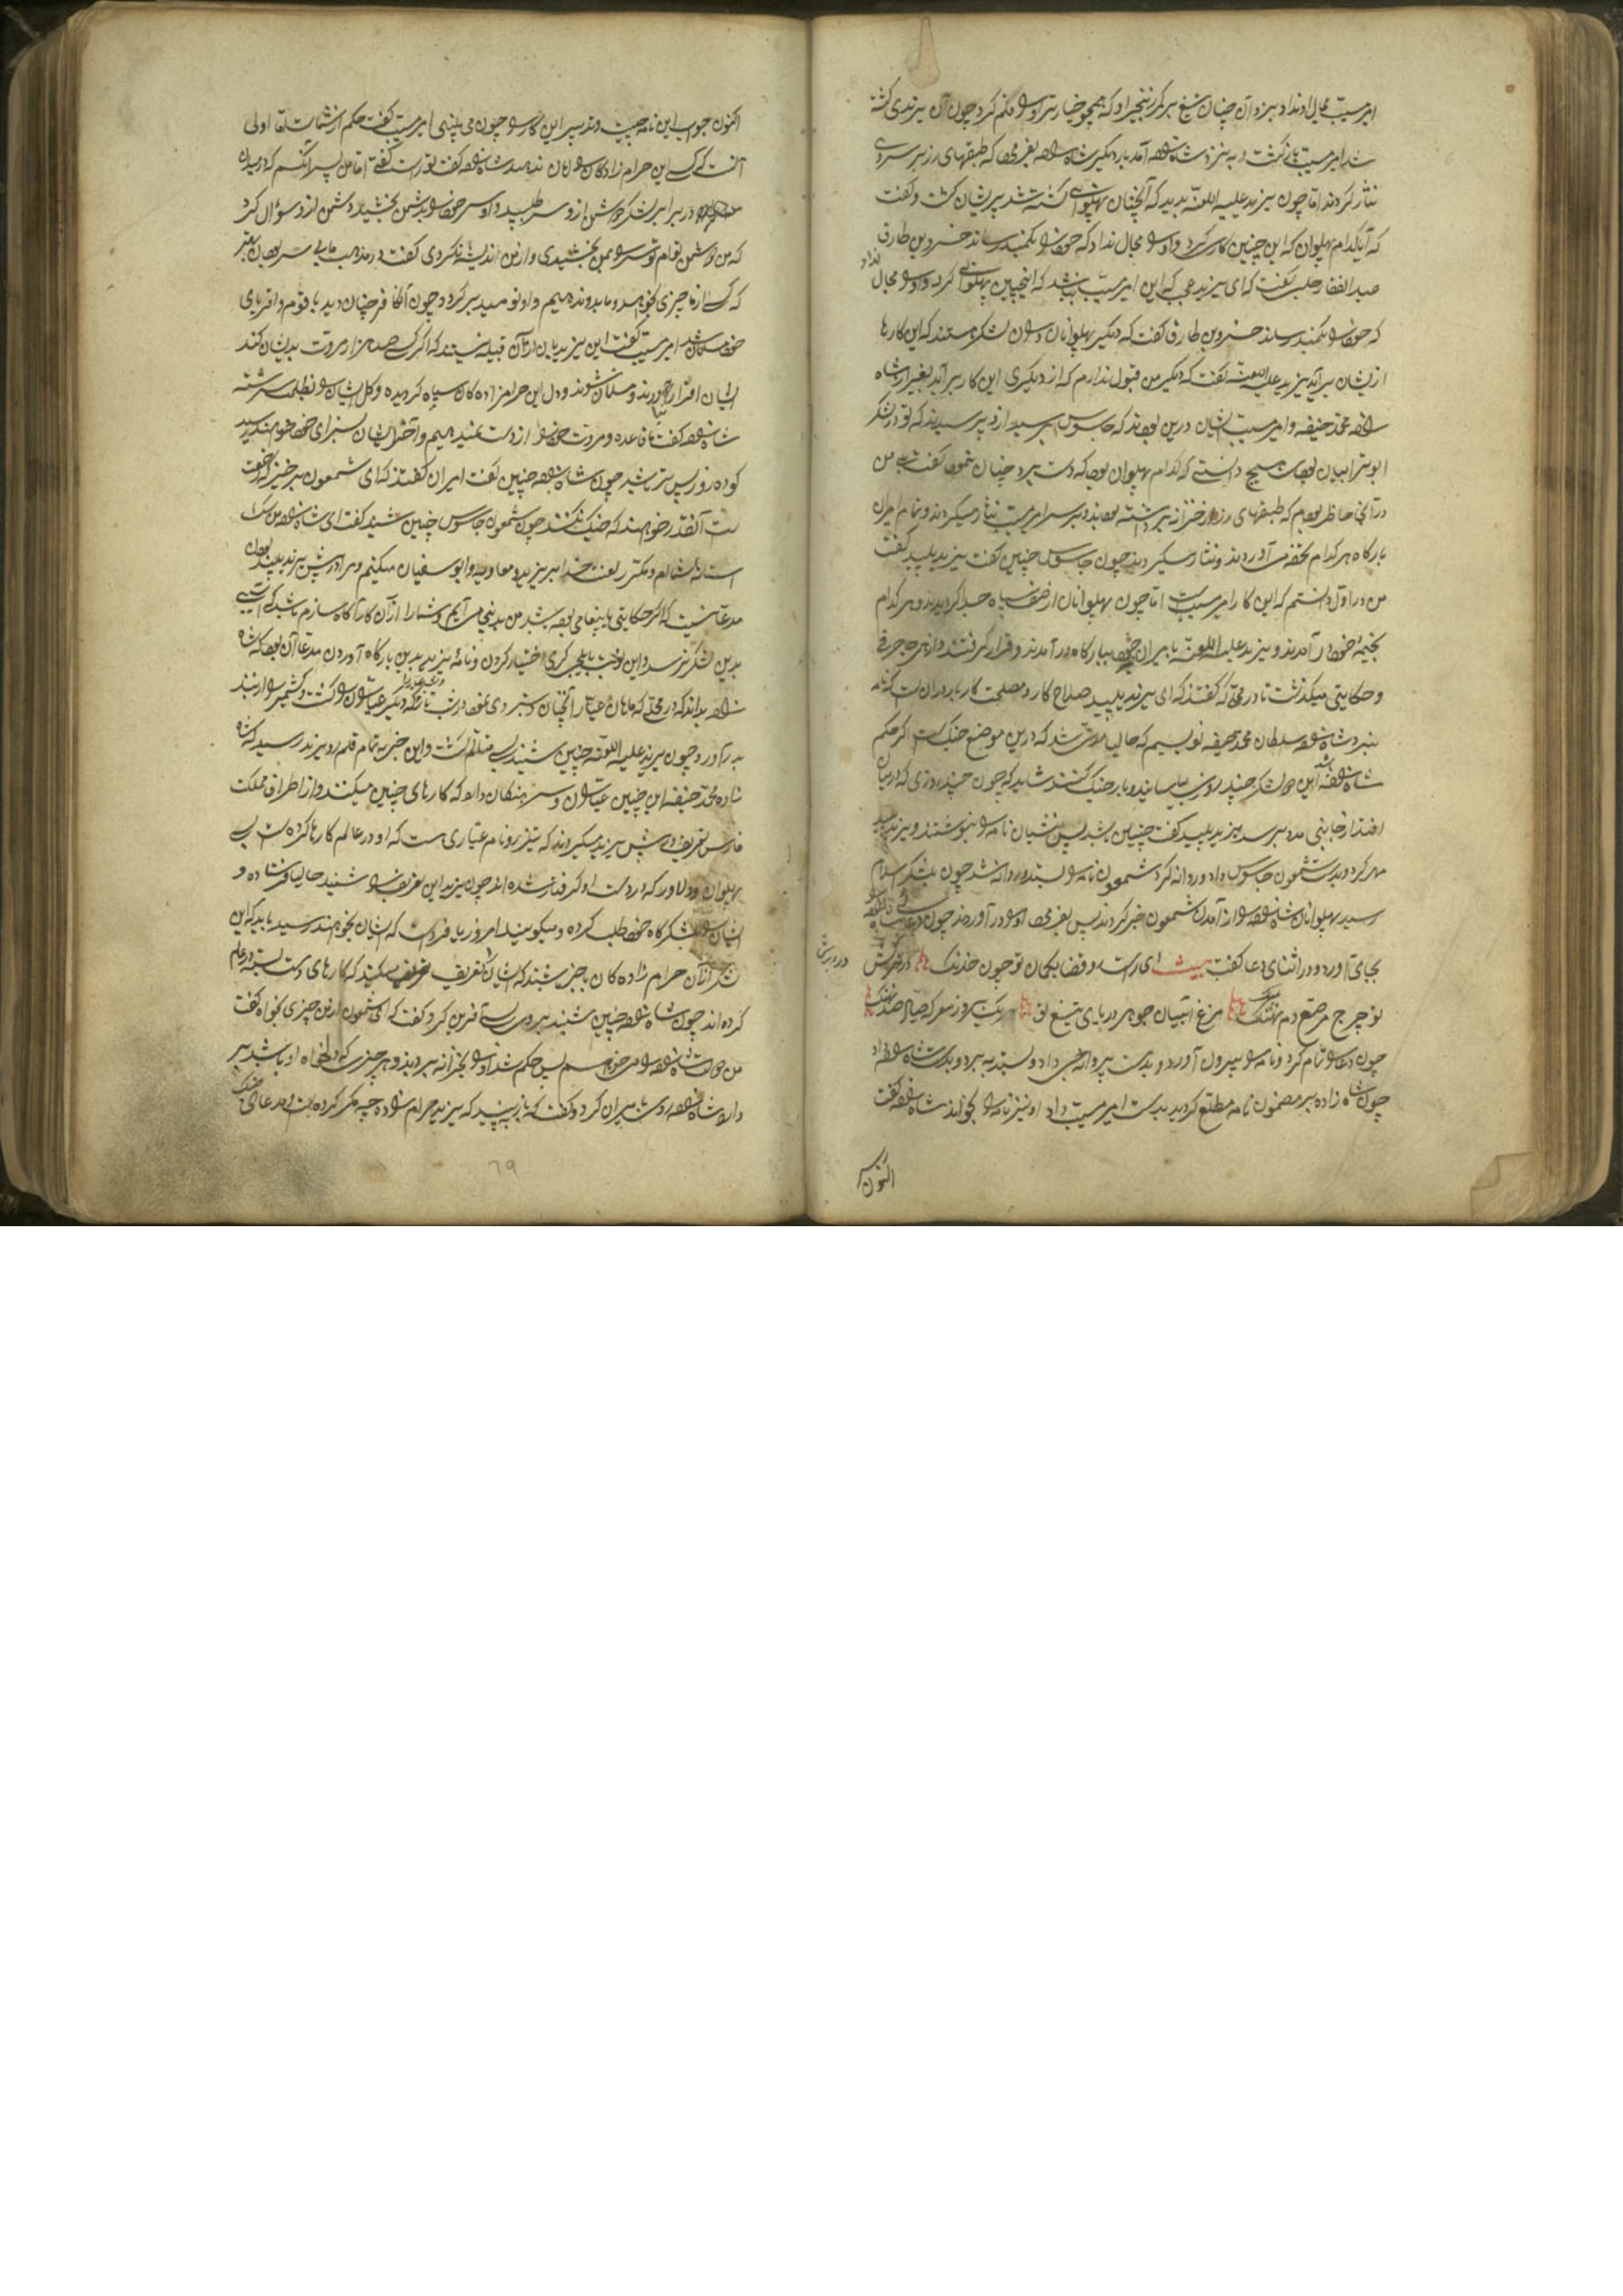 امیرسیّب مجال او نداد بزد آن چنان تیغ بر کمر زنجیر او که همچو خیار تر او را قلم کرد چون آن یزیدی کشته
شد امیرسیّب بازگشت و به نزد شاه‌زاده آمد بار دیگر شاه‌زاده بفرمود که طبقهای زر بر سر وی
نثار کردند امّا چون یزید علیه اللعنّه بدید که آنچنان پهلوانی کشته شد پریشان گشت و گفت
که آیا کدام پهلوان که این چنین کاری کرد و او را مجال نداد که خود را بکمند رساند خسرو بن طارق
عبدالغفار حلبی گفت که ای یزید عجب که این امیرسیّب نباشد که اینچنین پهلوانی کرد و او را مجال نداد
که خود را بکمند رساند خسرو بن طارق گفت که دیگر پهلوانان در آن لشکر هستند که این کارها
ازیشان برآید یزید علیه اللعنّه گفت که دیگر من قبول ندارم که از دیگری این کار برآید بغیر از شاه
زاده محمّد حنیفه و امیرسیّب ایشان درین بودند که جاسوس برسید ازو پرسیدند که تو در لشکر
ابوترابیان بودی هیچ دانستی که کدام پهلوان بود که دست برد چنان نمود گفت بلی من
در آنجا حاظر بودم که طبقهای زر از خزانه برداشته بودند و بر سر امیرسیّب نثار میکردند و تمام امیران
بارگاه هر کدام تحفه می آوردند و نثار میکردند چون جاسوس چنین گفت یزید پلید گفت
من در اوّل دانستم که این کار امیرسیّب است امّا چون پهلوانان از صف سپاه جدا گردیدند و هر کدام
بخیمه خود در آمدند و یزید علیه اللعنّه با میران خود ببارگاه در آمدند و قرار گرفتند و از هر جا حرفی
و حکایتی میگذشت تا در محلّی که گفتند که ای یزید پلید صلاح کار و مصلحت کار ما در آن است که نامه
بنزد شاه‌زاده سلطان محمّد حنیفه نویسیم که حالیا مدّتی شد که درین موضع جنگ است اگر حکم
شاه‌زاده باشد این دو لشکر چند روزی بیاسایند و باز جنگ کنند شاید که چون چند روزی که در میان
افتد از جانبی مدد برسد یزید پلید گفت چنین باشد پس منشیان نامه را بنوشتند و یزید پلید
مهر کرد و بدست شمعون جاسوس داد و روانه کرد شمعون نامه را بستد و روانه شد چون بلشکر اسلام
رسید پهلوانان شاه‌زاده را از آمدن شمعون خبر کردند پس بفرمود او را در آوردند چون دعا
بجای آورد و در اثنای دعا گفت بیت ای راست رو قضا بکمان تو چون خدنگ
تو چرخ مرصّع دم نهنگ مرغ آشیان جوهر دریای تیغ تو یک روز معرکه صیّاد صد نهنگ
چون دعا را تمام کرد و نامه را بیرون آورد و بدست پروانچی داد و بستد و ببرد و بدست شاه‌زاده داد
چون شاه زاده بر مضمون نامه مطلع گردید بدست امیرسیّب داد او نیز نامه را بخواند شاه‌زاده گفت
اکنون
اکنون جواب این نامه چیست و تدبیر این کار را چون می بینی امیرسیّب گفت حکم از شماست امّا اولی
آنست که کسی این حرام زادگان را امان ندهد شاه‌زاده گفت تو راست گفتی امّا من پسر آنکسم که در میدان
در برابر لشکر دشمن ازو سر طلبید و او سر خود را بدشمن بخشید و دشمن ازو سؤال کرد
که من دشمن توام تو سر را بمن بخشیدی و ازین اندیشه نکردی گفت در مذهب ما بی سر بودن بهتر
که کسی از ما چیزی بخواهد و ما بدو ندهیم و او نومید برگردد چون آن کافر چنان دید با قوم و اقربای
خود مسلمان شد امیرسیّب گفت این یزیدیان از آن قبیله نیستند که اگر کسی صد هزار مروت بدیشان کند
ایشان اقرار آورند و مسلمان شوند و دل این حرامزاده کان سیاه گردیده و گل ایشان را بظلمت سرشته
شاه‌زاده گفت ما قاعده و مروت خود را از دست نمیدهیم و آخر ایشان بسزای خود خواهند رسید
کو ده روز پس تر باشید چون شاه‌زاده چنین گفت امیران گفتند که ای شمعون برخیز که رخصت
است آنقدر خواهند که جنگ نکنند چون شمعون جاسوس چنین شنید گفت ای شاه‌زاده من سگ
آستانه شماام و مکرّر لعنت خدا بر یزید و معاویه و ابوسفیان میکنم و مرا در پیش یزید پلید بودن
مدعا نیست که اگر حکایتی یا پیغامی بوده باشد من بدینجا می آیم و شما را از آن کار آگاه سازم باشد که آسیبی
بدین لشکر نرسد و این نوبت بایلچی گری اختیار کردن و نامهٔ یزید بدین بارگاه آوردن مدعا آن بود که شاه
زاده بداند که در محلّی که ماهان عیّار آنچنان دستبردی نمود در شب تاریکه دیگر عیّاران را کشت و کشمیر را از بند
بدر آورد و چون یزید علیه اللعنّه چنین شنید بسی متألم گشت و این خبر به تمام قلمرو یزید رسید که شاه
زاده محمّد حنیفه این چنین عیّاران و سرهنگان دارد که کارهای چنین میکنند و از اطراف مملکت
فارس تعریف در پیش یزید میکردند که تیزرو نام عیّاری هست که او در عالم کارها کرده است بسی
پهلوان و دلاور که در دست او گرفتار شده اند چون یزید این تعریف را شنید حالیا فرستاده و
ایشان را بلشکرگاه خود طلب کرده و میگویند امروز یا فرداست که ایشان بخواهند رسید باید که این
لشکر از آن حرام زاده کان باخبر باشند که ایشان را تعریف میکنند که کارهای دست بسته در عالم
کرده اند چون شاه‌زاده چنین شنید بر وی بسی آفرین کرد و گفت که ای شمعون ازین چیزی بخواه گفت
من دولت شاه‌زاده را می خواهم پس حکم شد او را بخزانه بردند و هر چیزی که دلخواه او باشد بر
دارد شاه‌زاده روی به امیران کرد و گفت که باز ببینید که یزید حرام زاده چه مکر کرده است و مدعای
٦٩